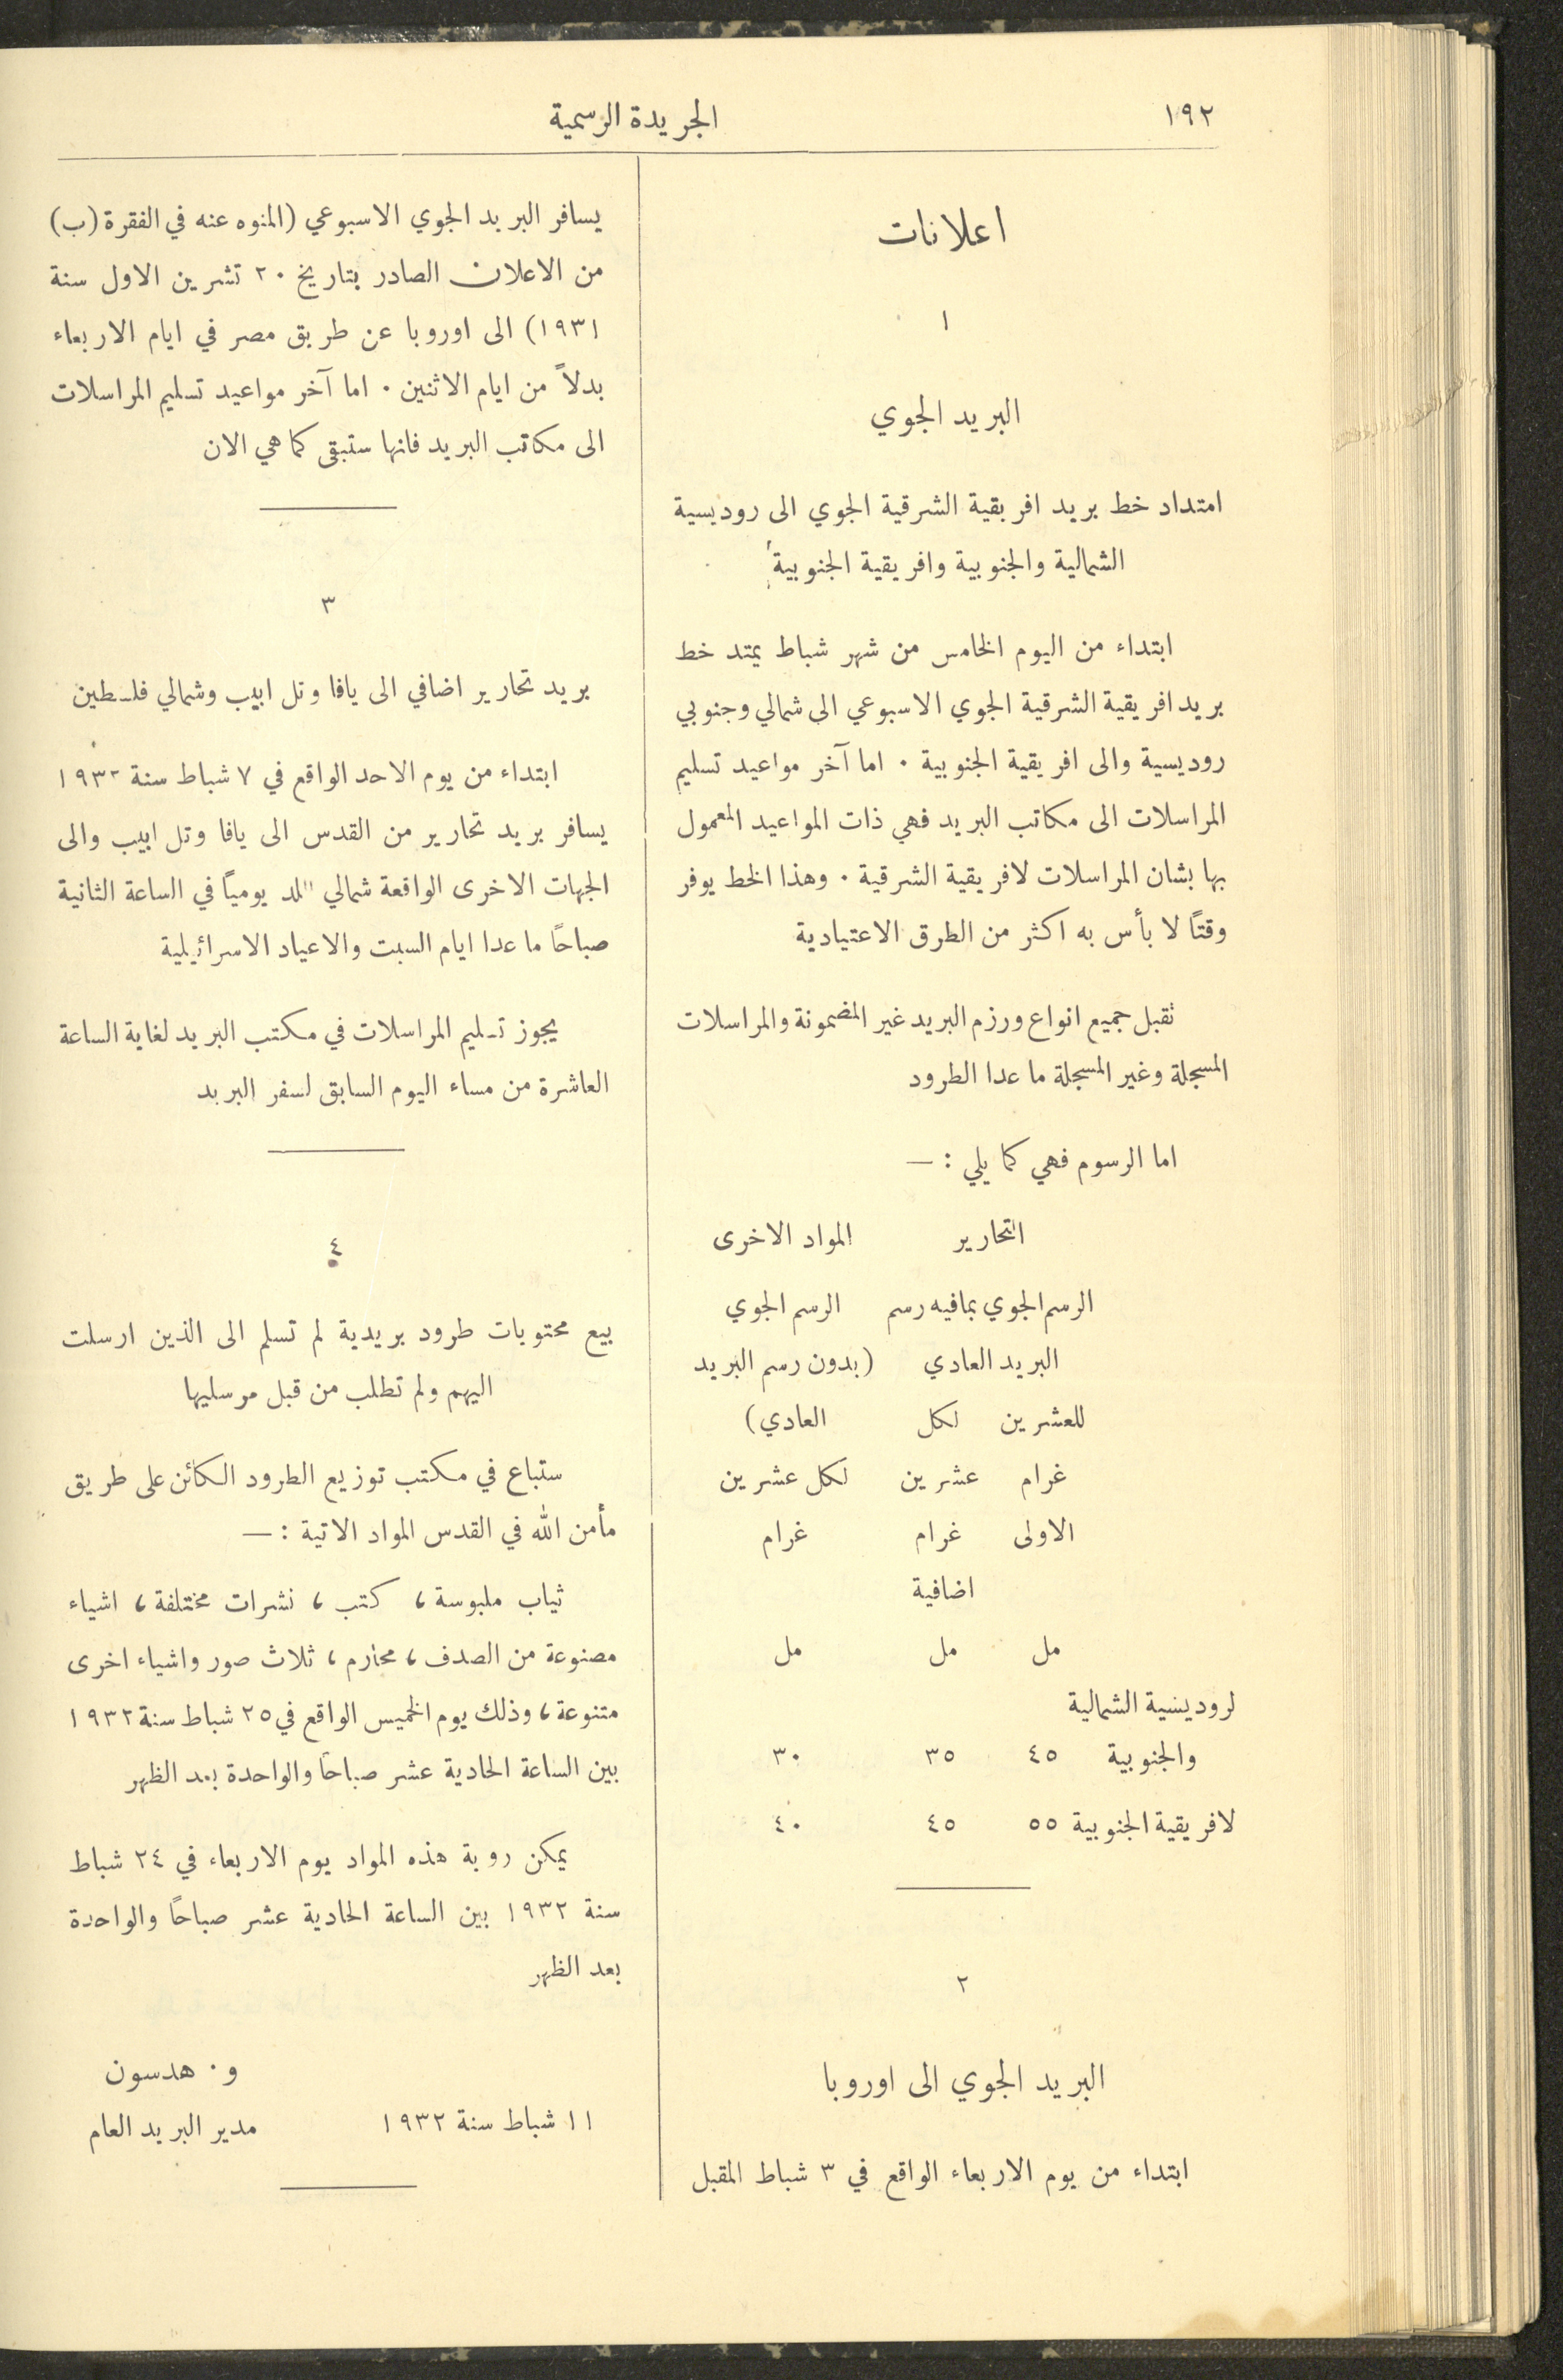 ١٩٢
الجريدة الرسمية
اعلانات
١
البريد الجوي
امتداد خط بريد افريقية الشرقية الجوي الى روديسية
الشمالية والجنوبية وافريقية الجنوبية
ابتداء من اليوم الخامس من شهر شباط يمتد خط
بريد افريقية الشرقية الجوي الاسبوعي الى شمالي وجنوبي
روديسية والى افريقية الجنوبية . اما آخر مواعيد تسليم
المراسلات الى مكاتب البريد فهي ذات المواعيد المعمول
بها بشان المراسلات لافريقية الشرقية . وهذا الخط يوفر
وقتًا لا بأس به اكثر من الطرق الاعتيادية
تقبل جميع انواع ورزم البريد غير المضمونة والمراسلات
المسجلة وغير المسجلة ما عدا الطرود
اما الرسوم فهي كما يلي : —
التحارير المواد الاخرى
الرسم الجوي بمافيه رسم الرسم الجوي
البريد العادي (بدون رسم البريد
للعشرين لكل العادي)
غرام عشرين لكل عشرين
الاولى غرام غرام
اضافية
مل مل مل
لروديسية الشمالية
والجنوبية ٤٥ ٣٥ ٣٠
لافريقية الجنوبية ٥٥ ٤٥ ٤٠
٢
البريد الجوي الى اوروبا
ابتداء من يوم الاربعاء الواقع في ٣ شباط المقبل
يسافر البريد الجوي الاسبوعي (المنوه عنه في الفقرة (ب)
من الاعلان الصادر بتاريخ ٢٠ تشرين الاول سنة
١٩٣١) الى اوروبا عن طريق مصر في ايام الاربعاء
بدلاً من ايام الاثنين . اما آخر مواعيد تسليم المراسلات
الى مكاتب البريد فانها ستبقى كما هي الان
٣
بريد تحارير اضافي الى يافا وتل ابيب وشمالي فلسطين
ابتداء من يوم الاحد الواقع في ٧ شباط سنة ١٩٣٢
يسافر بريد تحارير من القدس الى يافا وتل ابيب والى
الجهات الاخرى الواقعة شمالي اللد يوميًا في الساعة الثانية
صباحًا ما عدا ايام السبت والاعياد الاسرائيلية
يجوز تسليم المراسلات في مكتب البريد لغاية الساعة
العاشرة من مساء اليوم السابق لسفر البريد
٤
بيع محتويات طرود بريدية لم تسلم الى الذين ارسلت
اليهم ولم تطلب من قبل مرسليها
ستباع في مكتب توزيع الطرود الكائن على طريق
مأمن الله في القدس المواد الاتية : —
ثياب ملبوسة ، كتب ، نشرات مختلفة ، اشياء
مصنوعة من الصدف ، محارم ، ثلاث صور واشياء اخرى
متنوعة ، وذلك يوم الخميس الواقع في ٢٥ شباط سنة ١٩٣٢
بين الساعة الحادية عشر صباحًا والواحدة بعد الظهر
يمكن روية هذه المواد يوم الاربعاء في ٢٤ شباط
سنة ١٩٣٢ بين الساعة الحادية عشر صباحًا والواحدة
بعد الظهر
و . هدسون
١١ شباط سنة ١٩٣٢ مدير البريد العام